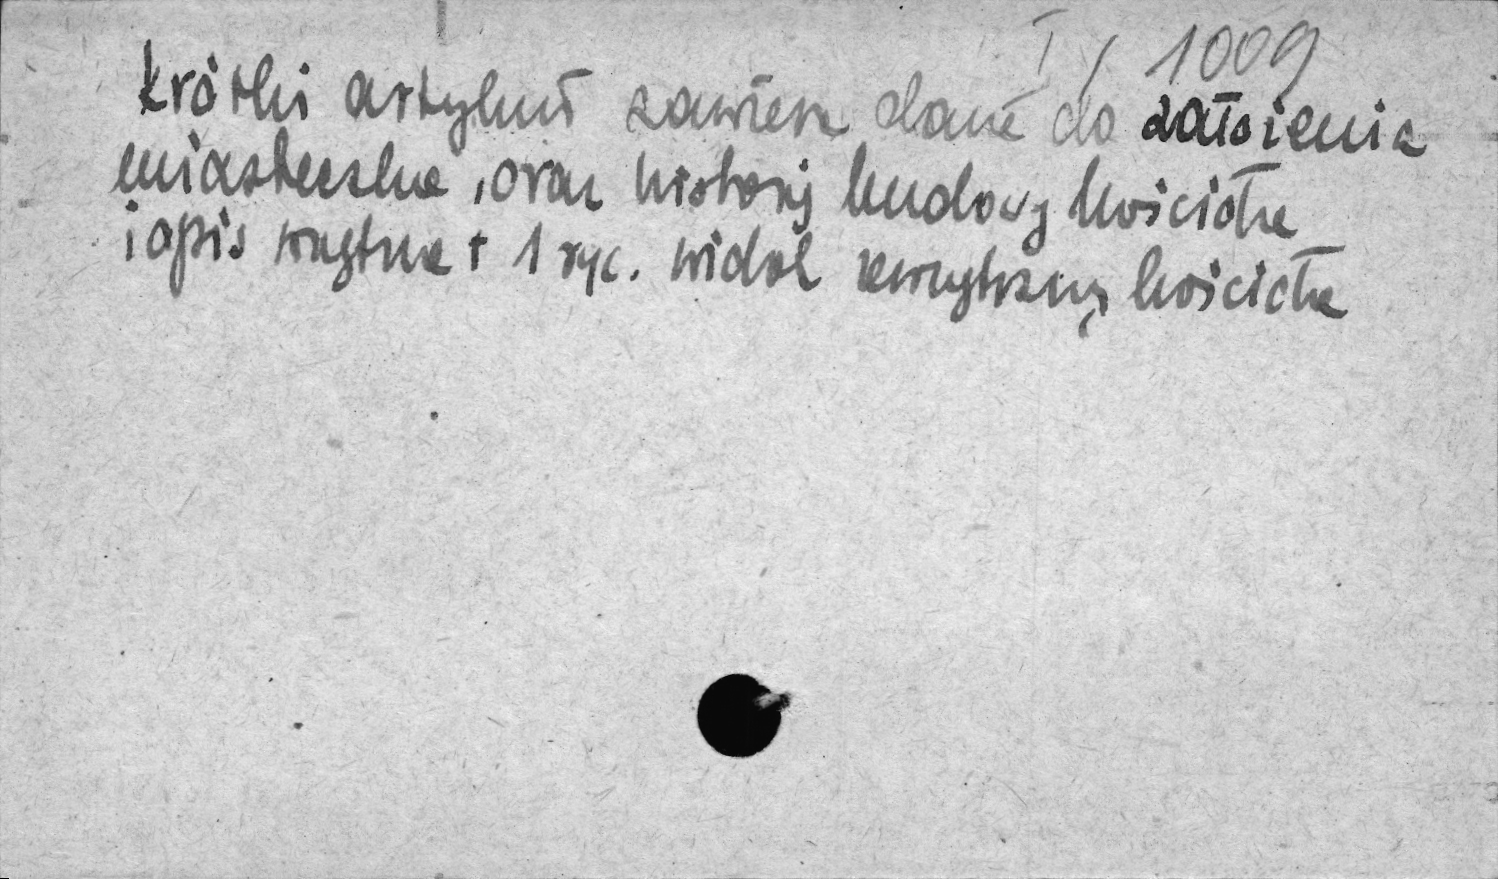 I / 1009
krótki artykuł zawiera dane do założenia
miasteczka, oraz historię budowy kościoła
i opis wnętrza + 1 ryc. widok zewnętrzny kościoła